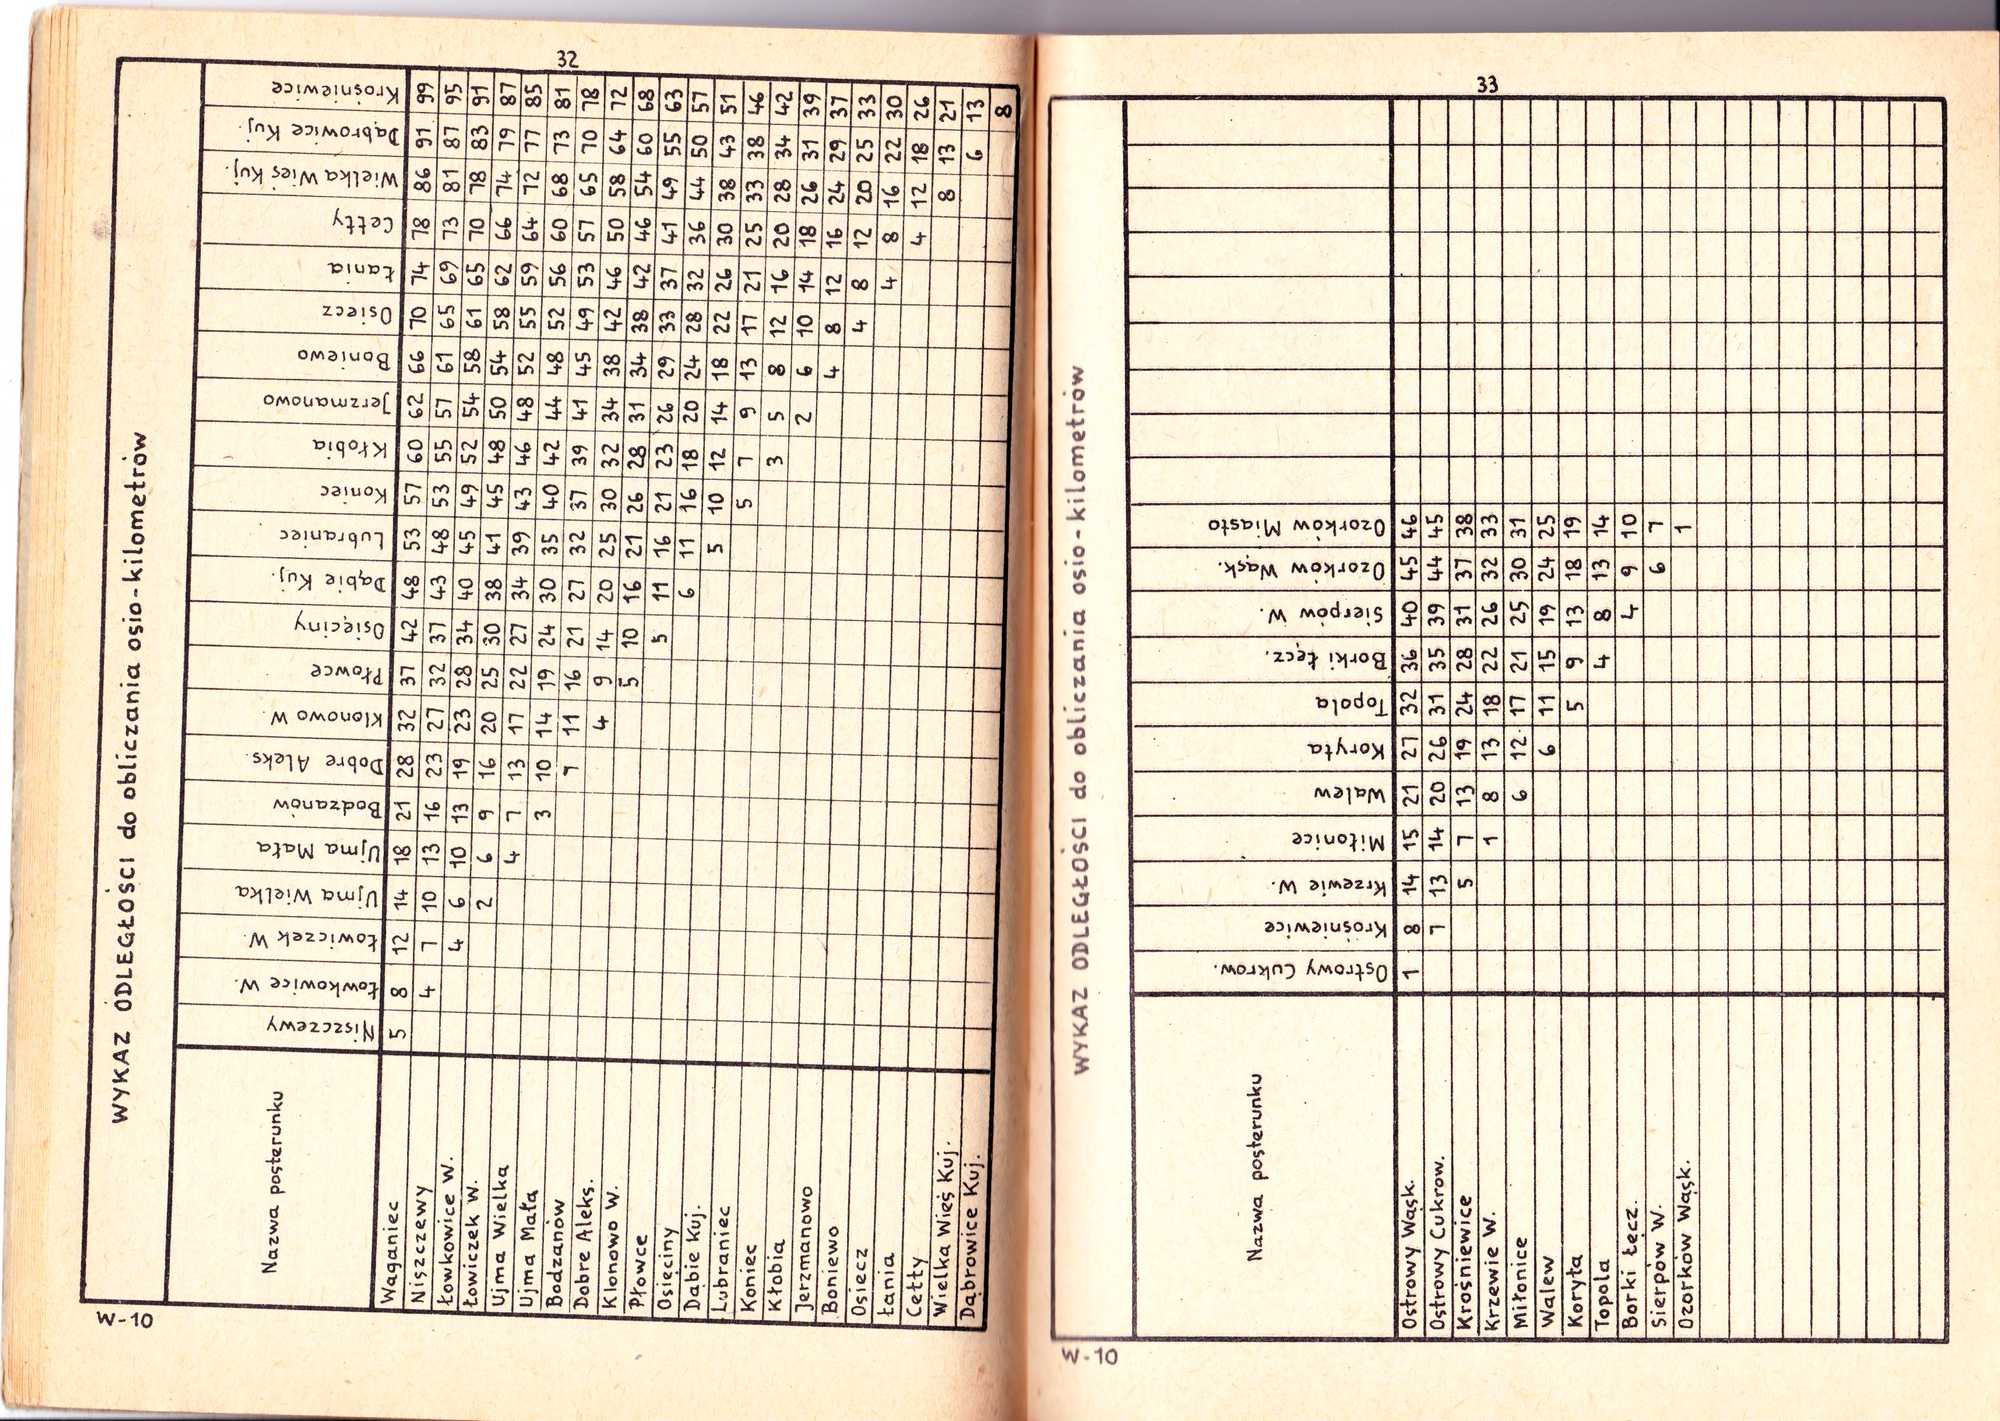 32
WYKAZ ODLEGŁOŚCI do obliczania osio-kilometrów
Nazwa posterunku Niszczewy Łowkowice W. Łowiczek W. Ujma Wielka Ujma Mała Bodzanów Dobre Aleks. Klonowo W. Płowce Osięciny Dąbie Kuj. Lubraniec Koniec Kłobia Jerzmanowo Boniewo Osiecz Łania Cetty Wielka Wieś Kuj. Dąbrowice Kuj. Krośniewice
Waganiec 5 8 12 14 18 21 28 32 37 42 48 53 57 60 62 66 70 74 78 86 91 99
Niszczewy 4 7 10 13 16 23 27 32 37 43 48 53 55 57 61 65 69 73 81 87 95
Łowkowice W. 4 6 10 13 19 23 28 34 40 45 49 52 54 58 61 65 70 78 83 91
Łowiczek W. 2 6 9 16 20 25 30 38 41 45 48 50 54 58 62 66 74 79 87
Ujma Wielka 4 7 13 17 22 27 34 39 43 46 48 52 55 59 64 72 77 85
Ujma Mała 3 10 14 19 24 30 35 40 42 44 48 52 56 60 68 73 81
Bodzanów 7 11 16 21 27 32 37 39 41 45 49 53 57 65 70 78
Dobre Aleks. 4 9 14 20 25 30 32 34 38 42 46 50 58 64 72
Klonowo W. 5 10 16 21 26 28 31 34 38 42 46 54 60 68
Płowce 5 11 16 21 23 26 29 33 37 41 49 55 63
Osięciny 6 11 16 18 20 24 28 32 36 44 50 57
Dąbie Kuj. 5 10 12 14 18 22 26 30 38 43 51
Lubraniec 5 7 9 13 17 21 25 33 38 46
Koniec 3 5 8 12 16 20 28 34 42
Kłobia 2 6 10 14 18 26 31 39
Jerzmanowo 4 8 12 16 24 29 37
Boniewo 4 8 12 20 25 33
Osiecz 4 8 16 22 30
Łania 4 12 18 26
Cetty 8 13 21
Wielka Wieś Kuj. 6 13
Dąbrowice Kuj. 8
W-10
33
WYKAZ ODLEGŁOŚCI do obliczania osio-kilometrów
Nazwa posterunku Ostrowy Cukrow. Krośniewice Krzewie W. Miłonice Walew Koryta Topola Borki Łęcz. Sierpów W. Ozorków Wąsk. Ozorków Miasto
Ostrowy Wąsk. 1 8 14 15 21 27 32 36 40 45 46
Ostrowy Cukrow. 7 13 14 20 26 31 35 39 44 45
Krośniewice 5 7 13 19 24 28 31 37 38
Krzewie W. 1 8 13 18 22 26 32 33
Miłonice 6 12 17 21 25 30 31
Walew 6 11 15 19 24 25
Koryta 5 9 13 18 19
Topola 4 8 13 14
Borki Łęcz. 4 9 10
Sierpów W. 6 7
Ozorków Wąsk. 1
W-10